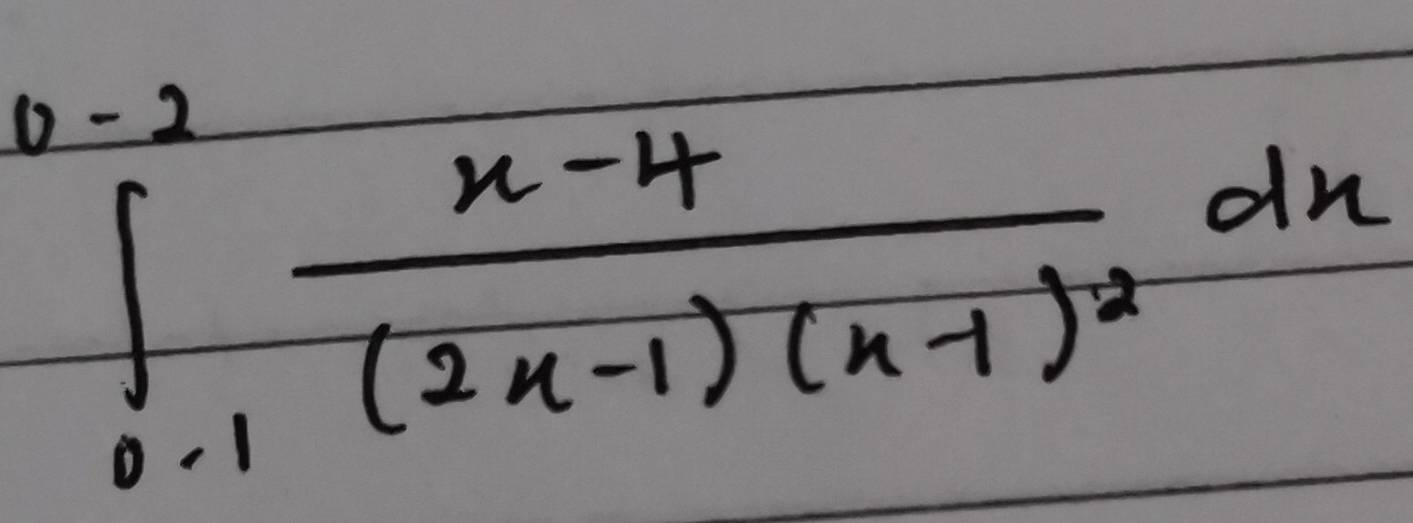 0-2
∫ x-4 / (2x-1)(x-1)² dx
0-1